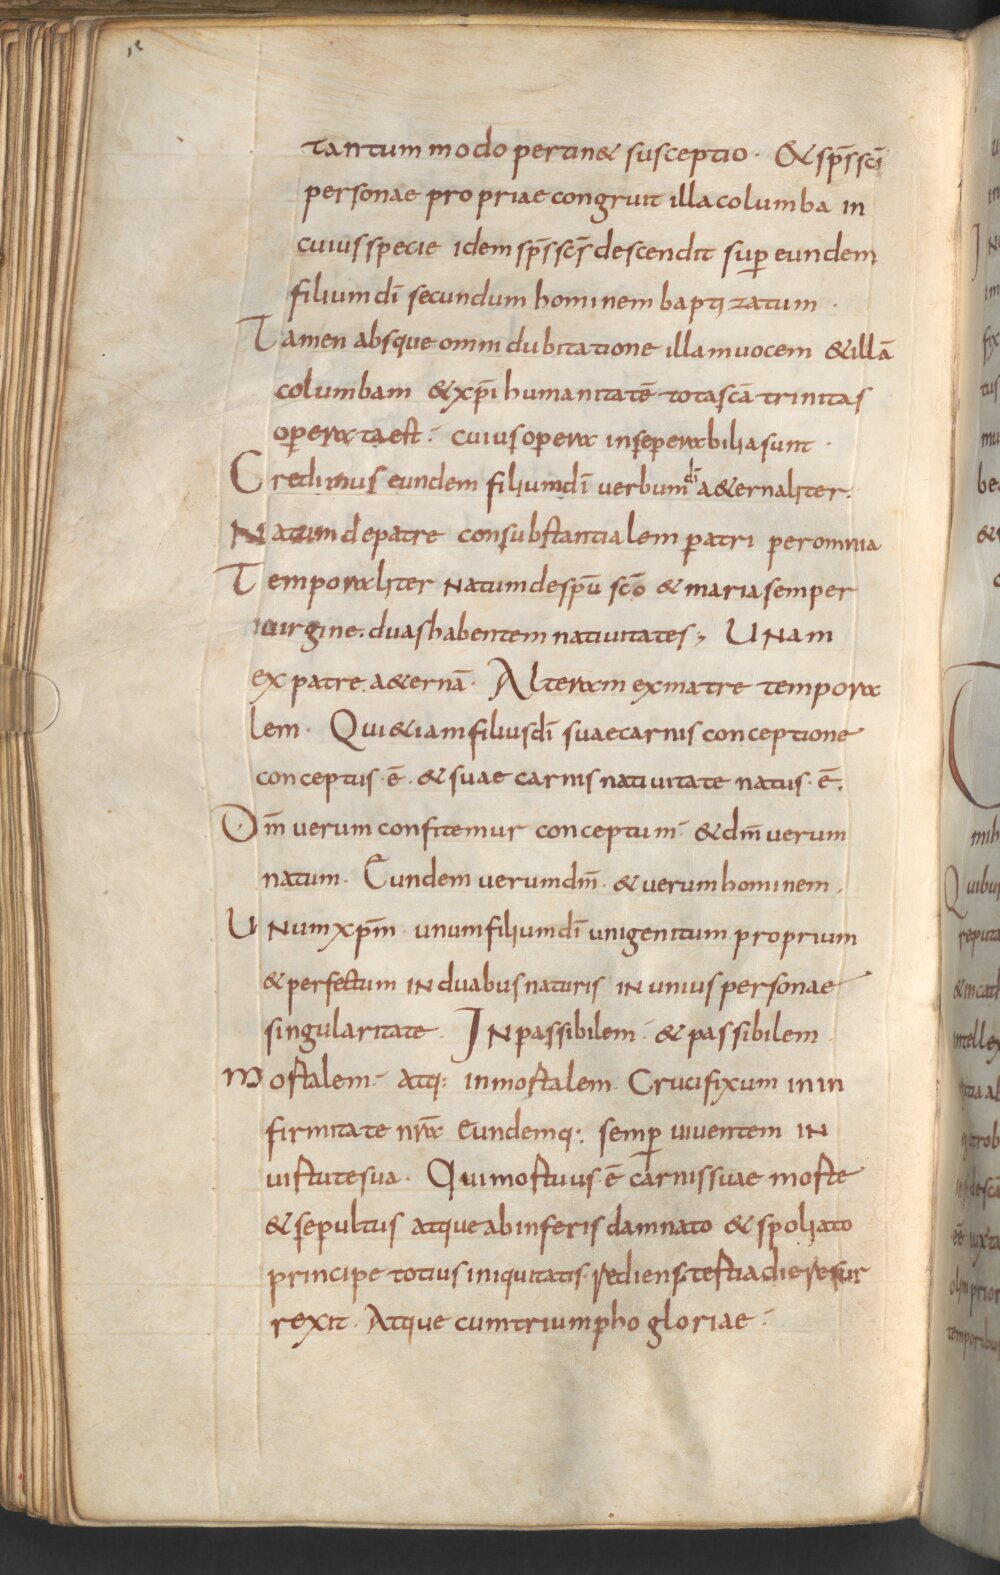 tantummodo pertin& susceptio · & sp̄s sc̄i
personae propriae congruit illa columba in
cuius specie idem sp̄s sc̄s descendit sup̱ eundem
filium dī secundum hominem baptizatum ·
Tamen absque omni dubitatione illam uocem & illā
columbam & xp̄i humanitatē tota sc̄a trinitas
op̱erata est · cuius opera insep̱erabilia sunt ·
Credimus eundem filium dī uerbum dī a&ernaliter ·
Natum de patre consubstantialem patri per omnia
Temporaliter natum de sp̄u sc̄o & maria semper
uirgine · duas habentem natiuitates , UNam
ex patre a&ernā · Alteram ex matre tempora
lem · Qui &iam filius dī suae carnis conceptione
conceptus · ē · & suae carnis natiuitate natus · ē ·
Dm̄ uerum confitemur conceptum · & dm̄ uerum
natum · Eundem uerum dm̄ · & uerum hominem ·
UNum xp̄m · unum filium dī unigenitum proprium
& perfectum IN duabus naturis IN unius personae
singularitate · INpassibilem · & passibilem
mortalem · atq: inmortalem · Crucifixum in in
firmitate nr̄a Eundemq: semp̱ uiuentem IN
uirtute sua · Qui mortuus · ē carnis suae morte
& sepultus atque ab inferis damnato & spoliato
principe totius iniquitatis · rediens tertia die resur
rexit · Atque cum triumpho gloriae ·